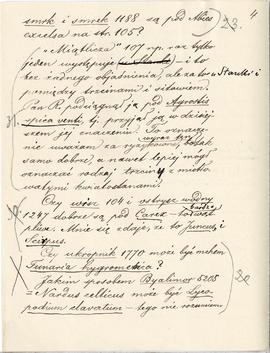 4
smrk i smrek 1188 są pod Abies 23.
excelsa na str. 105?
„Miątlicza" 107 np. raz tylko
jeden występuje i to
bez żadnego objaśnienia, ale za to „Stawki" i
pomiędzy trzcinami i sitowiem.
Pan R. podciągnął ją pod Agrostis
spica venti, tj. przyjął ją w dzisiej
szem jej znaczeniu. To oznacze
nie uważam za ryzykowne, bo tak
samo dobrze, a nawet lepiej mógł
oznaczać rodzaj trzciny z miotło
watymi kwiatostanami.
Czy wisz 104 i ostrysz wodny
1247 dobrze są pod Carex
Mnie się zdaje, że to Juncus i
Scirpus.
Czy ukropnik 1770 może być mchem
Funaria hygrometrica?
Jakim sposobem Byalimor 5205 20.
= Nardus celticus może być Lyco
podium clavatum – tego nie rozumiem